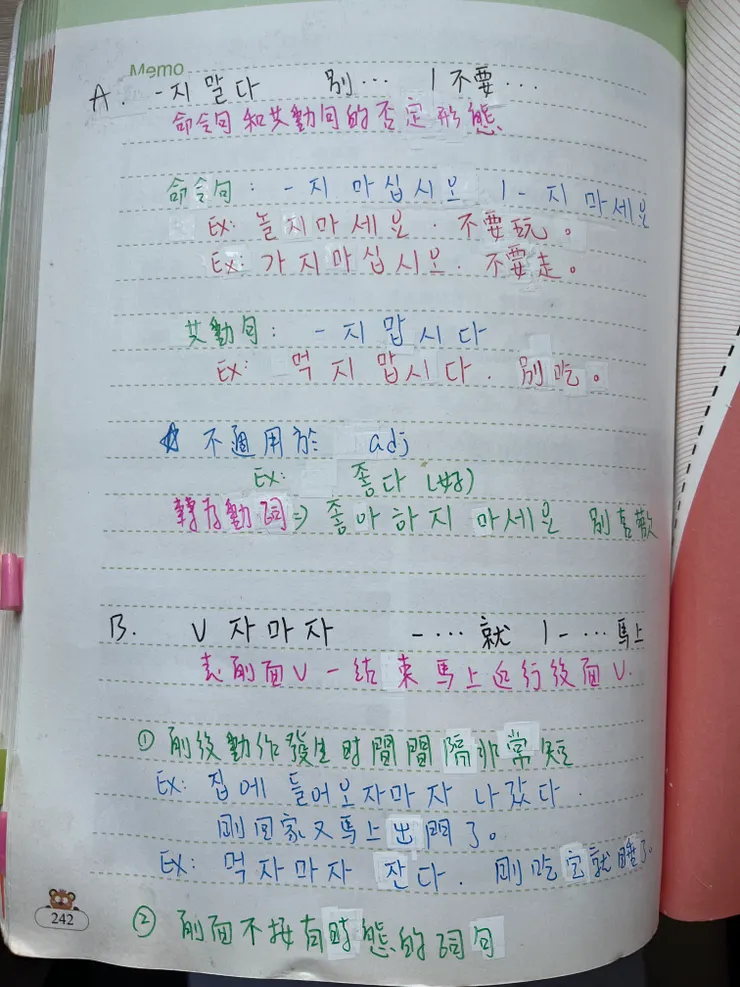 Memo
A. -지 말다 別… / 不要…
命令句和共動句的否定形態
命令句: -지 마십시오 / -지 마세요
Ex: 놀지마세요. 不要玩。
Ex: 가지마십시오. 不要走。
共動句: -지 맙시다
Ex: 먹지 맙시다. 別吃。
☆ 不適用於 adj
Ex: 좋다 (好)
轉為動詞⇒ 좋아하지 마세요 別喜歡
B. V 자마자 一…就 / 一…馬上
表前面V一結束馬上進行後面V.
① 前後動作發生时間間隔非常短
Ex: 집에 들어오자마자 나갔다.
剛回家又馬上出門了。
Ex: 먹자마자 잔다. 剛吃完就睡了。
② 前面不接有時態的詞句
242